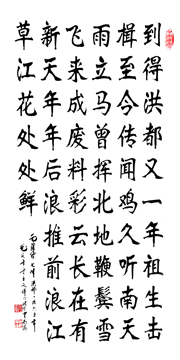 到得洪都又一年祖生击
楫至今传闻鸡久听南天
雨立马曾挥北地鞭鬓雪
飞来成废料彩云长在有
新天年年后浪推前浪江
草江花处处鲜